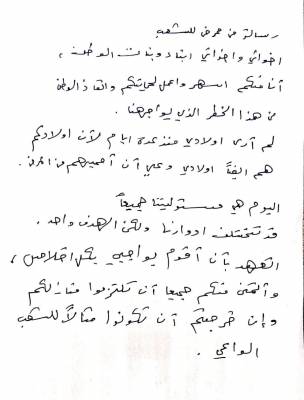 رسالة من ممرض للشعب
اخواني واخواتي ابناء وبنات الوطن ،
أنا منكم اسهر واعمل لحمايتكم وانقاذ الوطن
من هذا الخطر الذي يواجهنا .
لم أرى اولادي منذ عدة ايام لأن اولادكم
هم ايضاً اولادي وعلي أن أحميهم من المرض .
اليوم هي مسئوليتنا جميعاً
قد تختلف ادوارنا ولكن الهدف واحد .
اتعهد بأن أقوم بواجبي بكل اخلاص ،
وأتمنى منكم جميعا أن تلتزموا منازلكم
وإن خرجتم أن تكونوا مثالاً للشعب
الواعي .